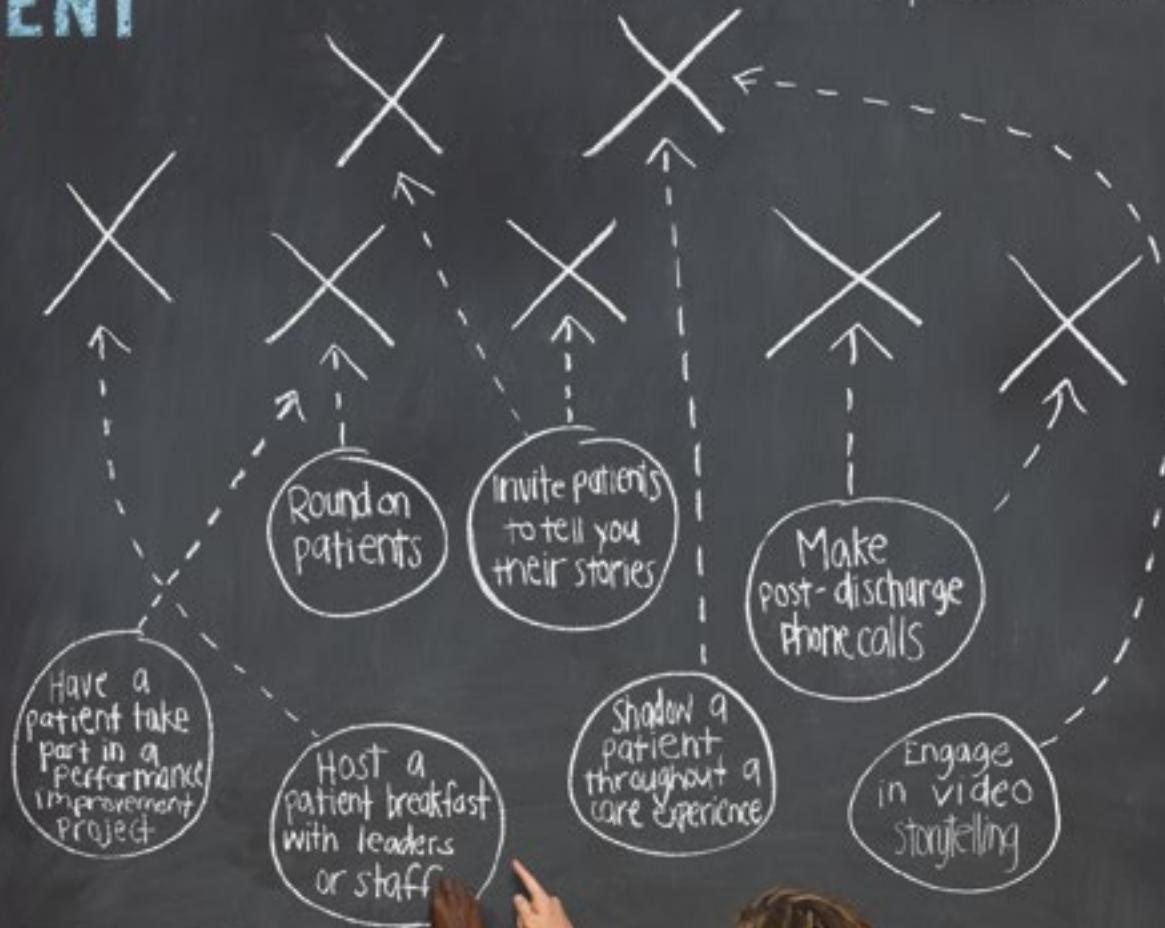 ENT
Round on
patients
Invite patients
to tell you
their stories
Make
post-discharge
phone calls
Have a
patient take
part in a
performance
improvement
project
Host a
patient breakfast
with leaders
or staff
Shadow a
patient
throughout a
care experience
Engage
in video
storytelling